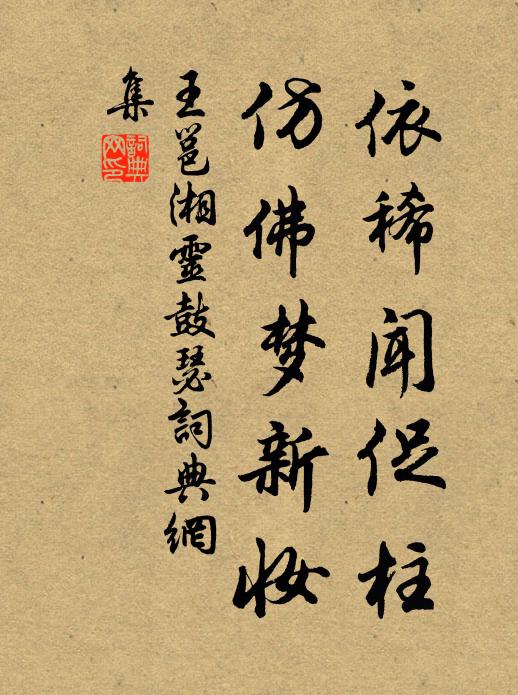 依稀闻促柱
仿佛梦新妆
王邕湘靈鼓瑟詞典網
集
詞典网印